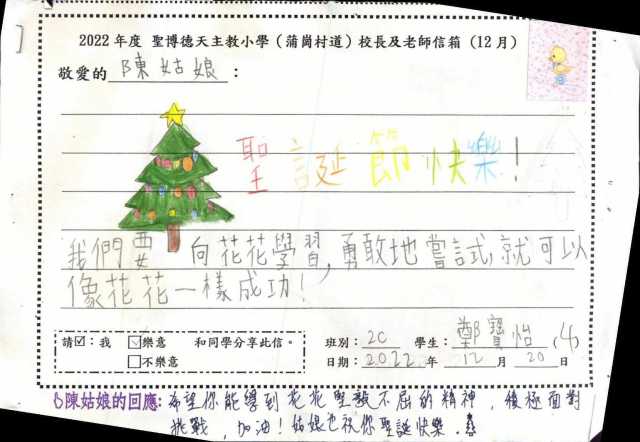 2022 年度 聖博德天主教小學（蒲崗村道）校長及老師信箱（12月）
敬愛的 陳姑娘：
聖誕節快樂！
我們要向花花學習，勇敢地嘗試，就可以
像花花一樣成功！
請☑：我 ☑樂意 和同學分享此信。
□不樂意
班別：2C 學生：鄭寶怡 (4)
日期：2022 年 12 月 20 日
陳姑娘的回應：希望你能學到花花堅毅不屈的精神，積極面對
挑戰，加油！姑娘也祝你聖誕快樂。